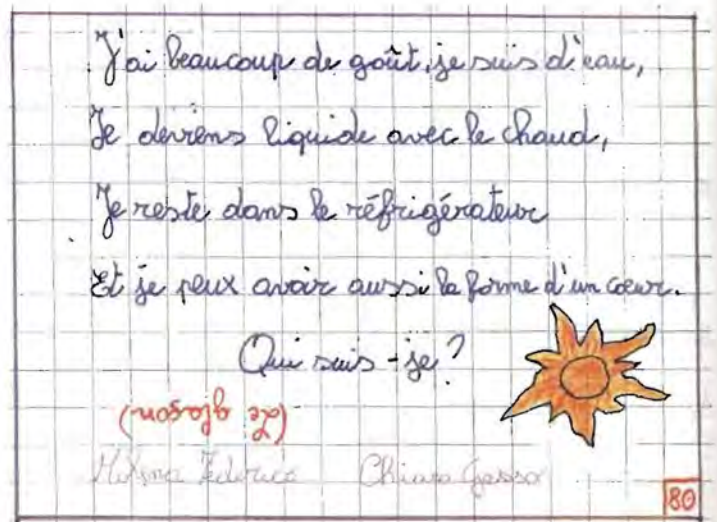 J'ai beaucoup de goût, je suis d'eau,
Je deviens liquide avec le chaud,
Je reste dans le réfrigérateur
Et je peux avoir aussi la forme d'un cœur.
Qui suis-je?
(le glaçon)
Federica Chiara
80